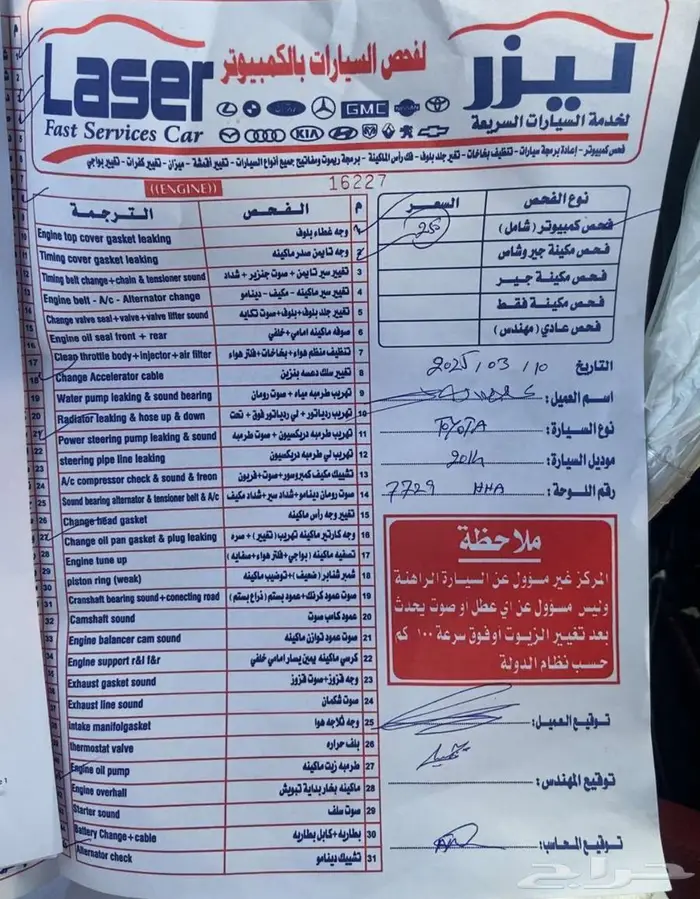 Laser
Fast Services Car
لفحص السيارات بالكمبيوتر
ليزر
لخدمة السيارات السريعة
GMC
KIA
فحص كمبيوتر - إعادة برمجة سيارات - تنظيف بخاخات - تغير جلد بلوف - فك رأس الماكينة - برمجة ريموت ومفاتيح جميع أنواع السيارات - تغيير أقمشة - ميزان - تغيير كفرات - تغيير بواجي
((ENGINE))
16227
الترجمة الفحص م
Engine top cover gasket leaking وجه غطاء بلوف
Timing cover gasket leaking وجه تايمن صدر ماكينه
Timing belt change+chain & tensioner sound تغيير سير تايمن + صوت جنزير + شداد 3
Engine belt - A/c - Alternator change تغيير سير ماكينه - مكيف - دينامو 4
Change valve seal+valve+valve lifter sound تغيير جلد بلوف+بلوف+صوت تكايه 5
Engine oil seal front + rear صوفه ماكينه امامي+خلفي 6
Cleap throttle body+injector+air filter تنظيف منظم هواء+بخاخات+فلتر هواء 7
Change Accelerator cable تغيير سلك دعسه بنزين 8
Water pump leaking & sound bearing تهريب طرمبه مياه + صوت رومان 9
Radiator leaking & hose up & down تهريب ردياتور + لي ردياتور فوق + تحت 10
Power steering pump leaking & sound تهريب طرمبه دريكسيون + صوت طرمبه 11
steering pipe line leaking تهريب لي طرمبه دريكسيون 12
A/c compressor check & sound & freon تشييك مكيف كمبروسور+صوت+فريون 13
Sound bearing alternator & tensioner belt & A/c صوت رومان دينامو+شداد سير+شداد مكيف 14
Change head gasket تغيير وجه رأس ماكينه 15
Change oil pan gasket & plug leaking وجه كارتير ماكينه تهريب (تغيير) + سره 16
Engine tune up تصفيه ماكينه (بواجي+فلتر هواء+صفايه) 17
piston ring (weak) شمبر شنابر (ضعيف)+توضيب ماكينه 18
Crankshaft bearing sound+conecting road صوت عمود كرنك+عمود بستم (ذراع بستم) 19
Camshaft sound عمود كامب صوت 20
Engine balancer cam sound صوت عمود توازن ماكينه 21
Engine support r&l f&r كرسي ماكينه يمين يسار امامي خلفي 22
Exhaust gasket sound وجه قزوز+صوت قزوز 23
Exhaust line sound صوت شكمان 24
Intake manifolgasket وجه ثلاجه هوا 25
thermostat valve بلف حراره 26
Engine oil pump طرمبه زيت ماكينه 27
Engine overhall ماكينه بخار بداية تبويش 28
Starter sound صوت سلف 29
Battery Change+cable بطاريه+كابل بطاريه 30
Alternator check تشييك دينامو 31
نوع الفحص السعر
فحص كمبيوتر (شامل) 25
فحص مكينة جير وشاص
فحص مكينة جير
فحص مكينة فقط
فحص عادي (مهندس)
التاريخ 2025/03/10
اسم العميل:
نوع السيارة: TOYOTA
موديل السيارة:
رقم اللوحة: 7729 HHA
ملاحظة
المركز غير مسؤول عن السيارة الراهنة
وليس مسؤول عن اي عطل او صوت يحدث
بعد تغيير الزيوت او فوق سرعة ١٠٠ كم
حسب نظام الدولة
توقيع العميل:
توقيع المهندس:
توقيع المحاسب:
حراج